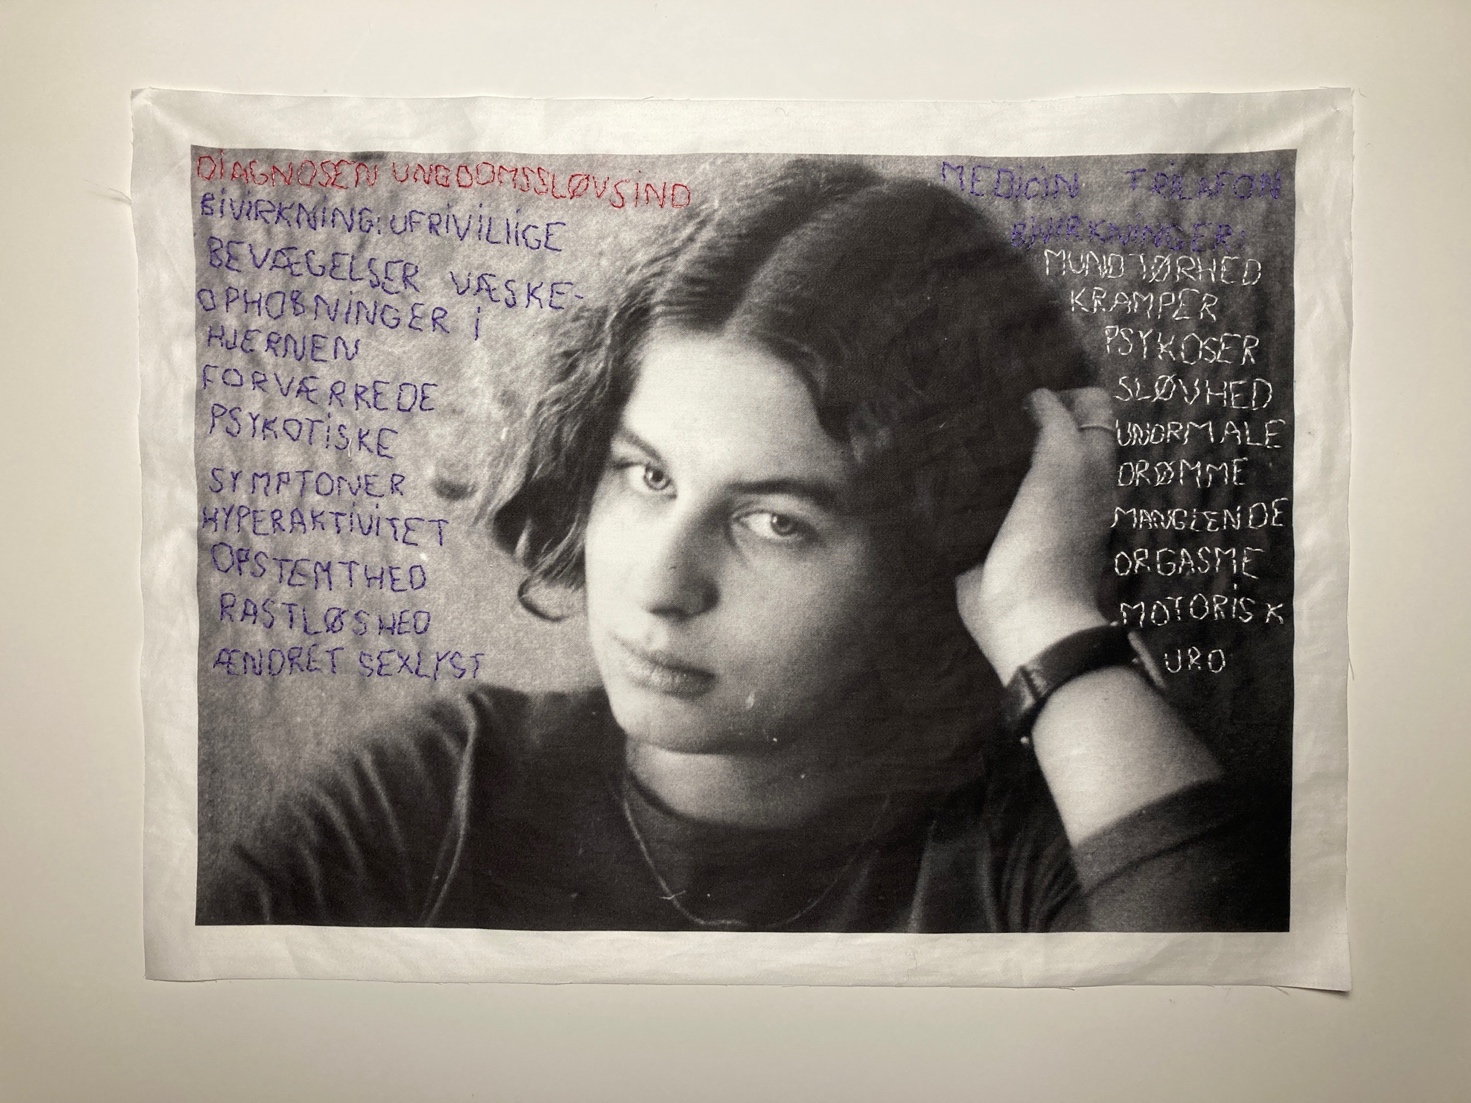 DIAGNOSEN UNGDOMSSLØVSIND
BIVIRKNING: UFRIVILIIGE
BEVÆGELSER VÆSKE-
OPHOBNINGER i
HJERNEN
FORVÆRREDE
PSYKOTISKE
SYMPTONER
HYPERAKTIVITET
OPSTEMTHED
RASTLØSHED
ÆNDRET SEXLYST
MEDICIN TRILAFON
BIVIRKNINGER:
MUNDTØRHED
KRAMPER
PSYKOSER
SLØVHED
UNORMALE
DRØMME
MANGLENDE
ORGASME
MOTORISK
URO